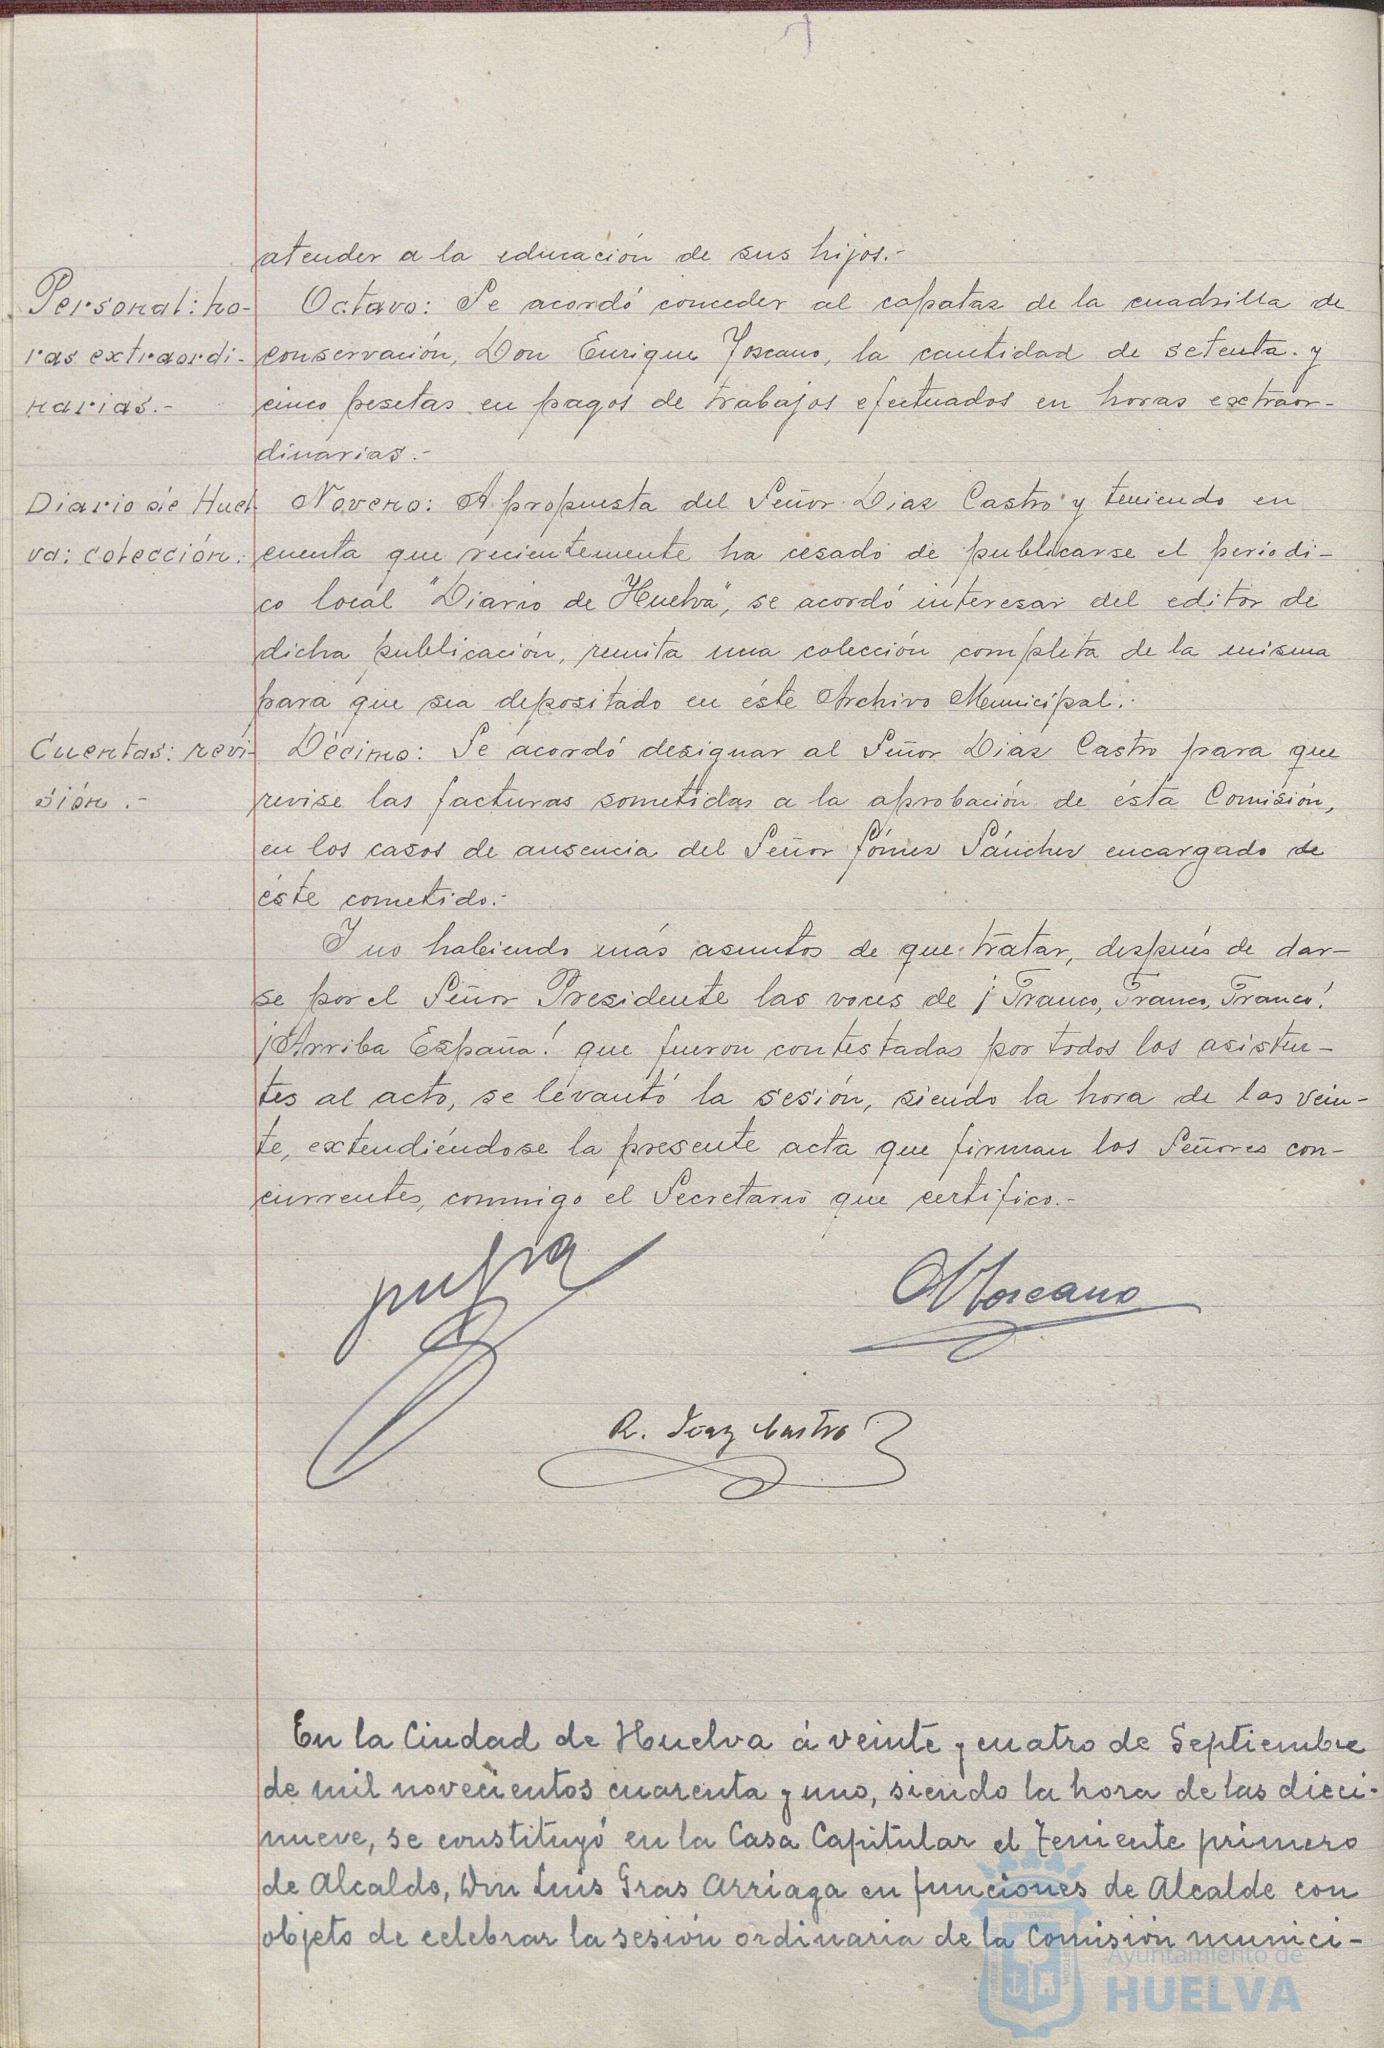 atender a la educación de sus hijos.-
Personal: ho-
ras extraordi-
narias.-
Octavo: Se acordó conceder al capataz de la cuadrilla de
conservación, Don Enrique Toscano, la cantidad de setenta y
cinco pesetas en pagos de trabajos efectuados en horas extraor-
dinarias.-
Diario de Huel
va: colección.
Noveno: A propuesta del Señor Diaz Castro y teniendo en
cuenta que recientemente ha cesado de publicarse el periodi-
co local "Diario de Huelva", se acordó interesar del editor de
dicha publicación, remita una colección completa de la misma
para que sea depositado en éste Archivo Municipal.-
Cuentas: revi-
sión.-
Décimo: Se acordó designar al Señor Diaz Castro para que
revise las facturas sometidas a la aprobación de ésta Comisión,
en los casos de ausencia del Señor Gómez Sánchez encargado de
éste cometido.-
Y no habiendo más asuntos de que tratar, después de dar-
se por el Señor Presidente las voces de ¡Franco, Franco, Franco!
¡Arriba España! que fueron contestadas por todos los asisten-
tes al acto, se levantó la sesión, siendo la hora de las vein-
te, extendiéndose la presente acta que firman los Señores con-
currentes, conmigo el Secretario que certifico.-
Toscano
R. Diaz Castro
En la Ciudad de Huelva á veinte y cuatro de Septiembre
de mil novecientos cuarenta y uno, siendo la hora de las dieci-
nueve, se constituyó en la Casa Capitular el Teniente primero
de Alcalde, Don Luis Gras Arriaga en funciones de Alcalde con
objeto de celebrar la sesión ordinaria de la Comisión munici-
Ayuntamiento de
HUELVA